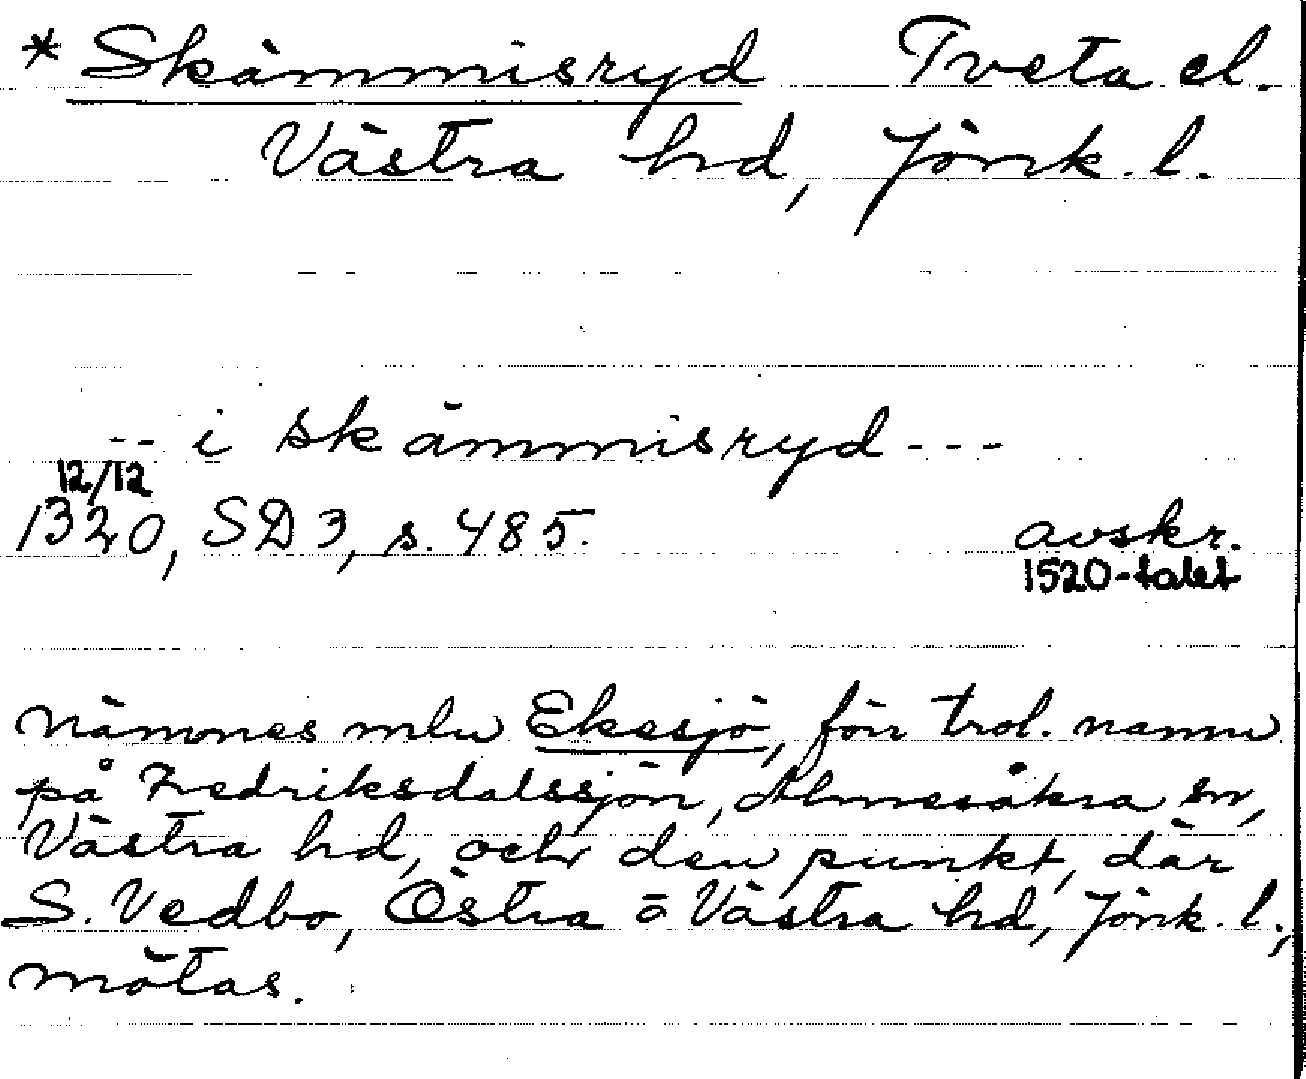 * Skämmisryd Tveta el.
Västra hd, Jönk. l.
-- i skämmisryd ---
12/12
1320, SD 3, s. 485. avskr.
1520-talet
nämnes mln Ekesjö, förr trol. namn
på Fredriksdalssjön, Almesåkra sn,
Västra hd, och den punkt, där
S. Vedbo, Östra o Västra hd, Jönk. l.,
mötas.